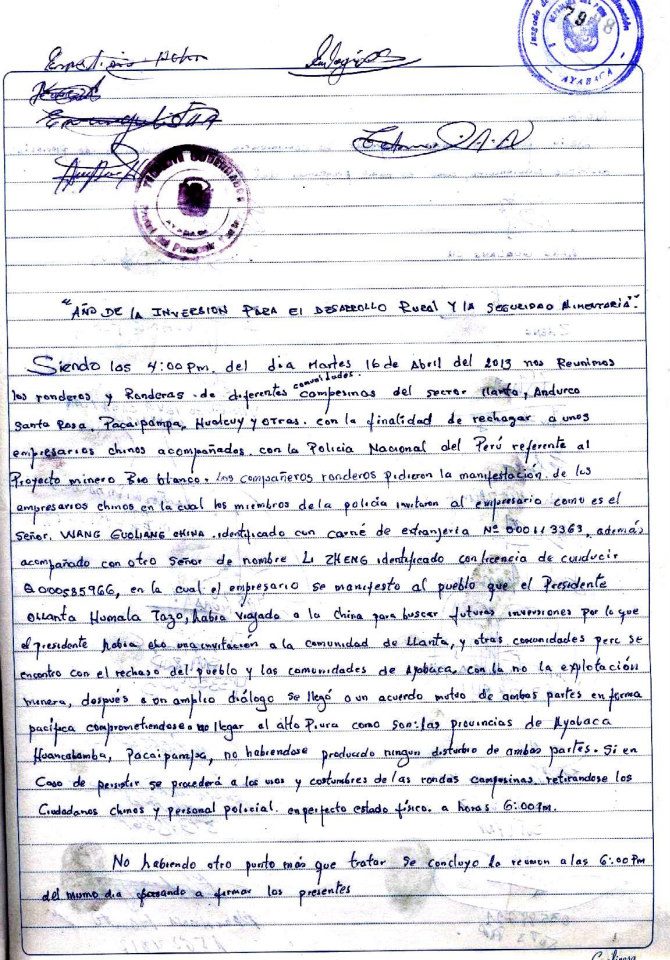 Juzgado de
79
AYABACA
TENIENTE GOBERNADOR
AYABACA
"AÑO DE LA INVERSION PARA El DESARROLLO RURAL Y LA SEGURIDAD ALIMENTARIA".
Siendo las 4:00 Pm. del dia Martes 16 de Abril del 2013 nos Reunimos
los ronderos y Ronderas de diferentes comunidades campesinas del sector llanta, Andurco
Santa Rosa, Pacaipampa, Hualcuy y otras. con la finalidad de rechazar a unos
empresarios chinos acompañados con la Policia Nacional del Perú referente al
Proyecto minero Rio blanco. Los compañeros ronderos pidieron la manifestación de los
empresarios chinos en la cual los miembros de la policia invitaron al empresario como es el
Señor. WANG GUOLIANG CHINA. identificado con carné de extranjeria Nº 000113363, además
acompañado con otro Señor de nombre LI ZHENG identificado con licencia de cunducir
Q000585966, en la cual el empresario se manifesto al pueblo que el Presidente
Ollanta Humala Tazo, habia viajado a la china para buscar futuras inversiones por lo que
el presidente habia eho una invitacion a la comunidad de Llanta, y otras comunidades pero se
encontro con el rechaso del pueblo y las comunidades de Ayabaca, con la no la explotación
minera, después a un amplio diálogo se llegó a un acuerdo mutuo de ambas partes en forma
pacífica comprometiendose. no llegar al alto Piura como son: las provincias de Ayabaca
Huancabamba, Pacaipampa, no habiendose producido ningun disturbio de ambas partes. Si en
Caso de persistir se procederá a los usos y costumbres de las rondas campesinas. retirandose los
Ciudadanos chinos y personal policial. en perfecto estado físico. a horas 6:00 Pm.
No habiendo otro punto más que tratar se concluyo la reunion a las 6:00 Pm
del mismo dia pasando a firmar los presentes